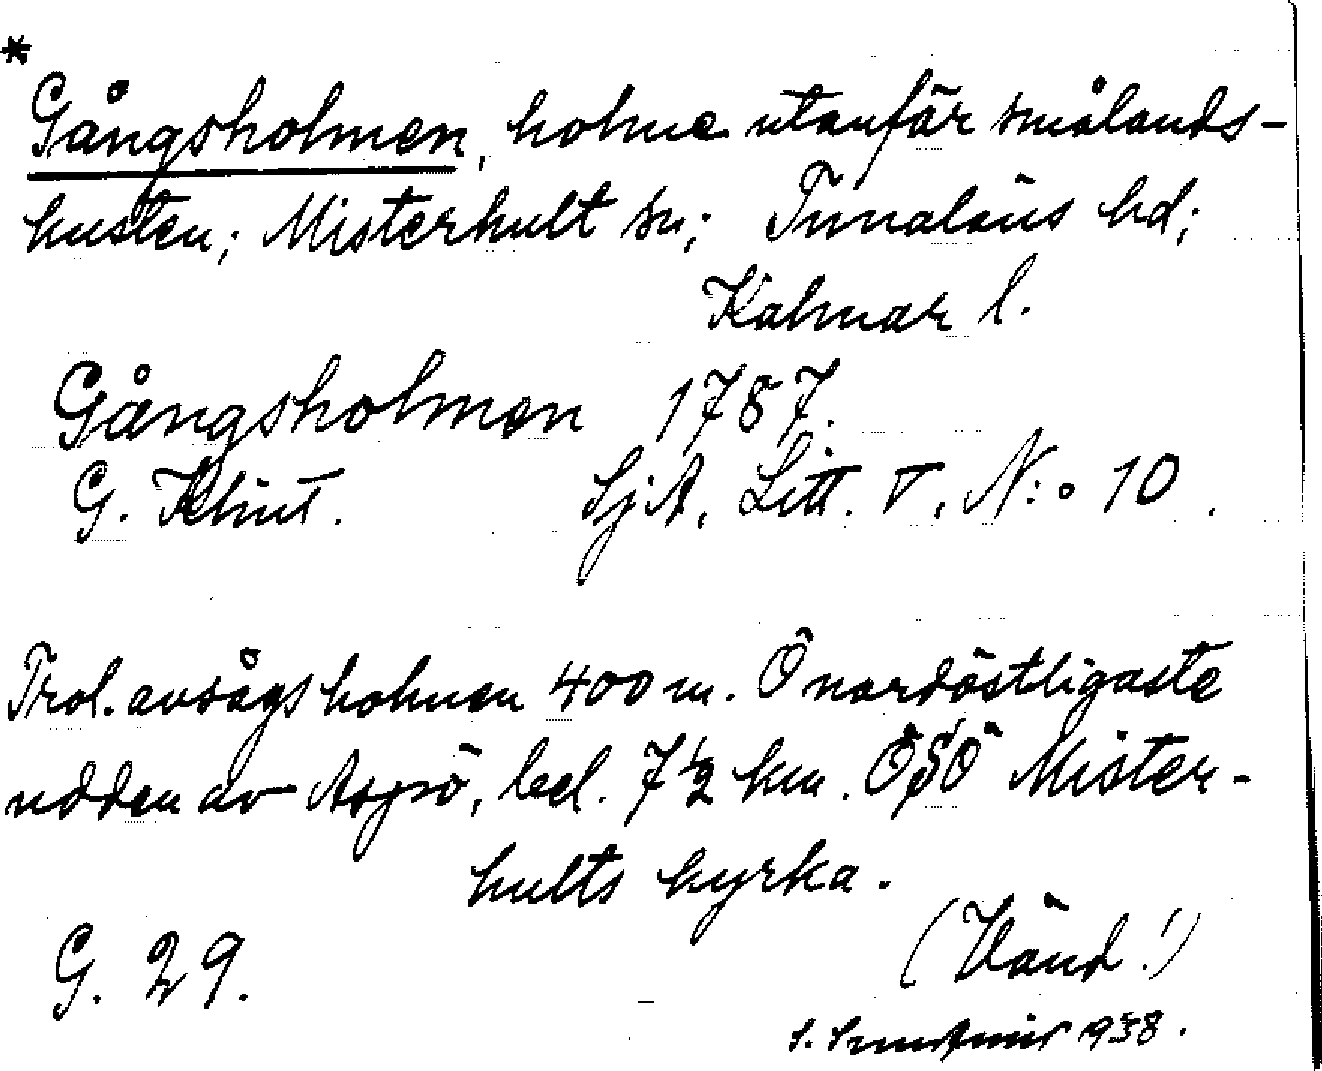 *
Gångsholmen, holme utanför smålands-
kusten; Misterhult sn; Tunaläns hd;
Kalmar l.
Gångsholmen 1787.
G. Klint. SjA, Litt. V, N:o 10.
Trol. avsågs holmen 400 m. Ö nordöstligaste
udden av Aspö, bel. 7 1/2 km. ÖSÖ Mister-
hults kyrka.
G. 29. (Vänd!)
1938.